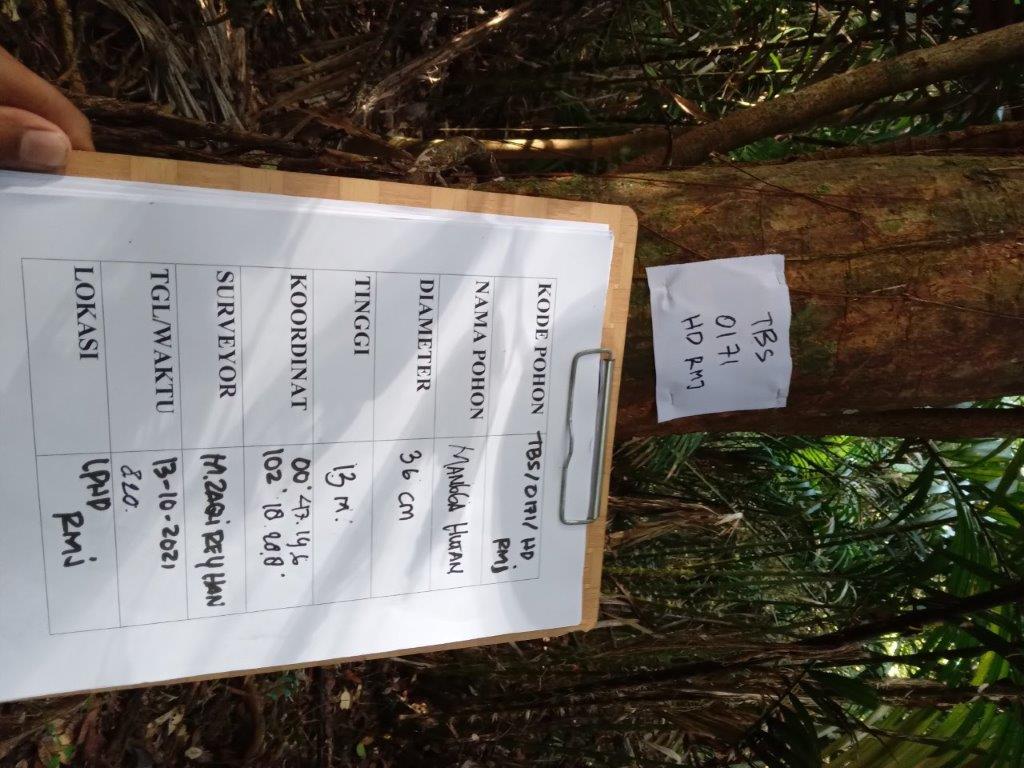 TBS
0171
HD RMJ
KODE POHON TBS/0171/ HD
RMJ
NAMA POHON MANGGA HUTAN
DIAMETER 36 cm
TINGGI 13 m.
KOORDINAT 00° 47. 19,6
102° 18. 20,8"
SURVEYOR M. ZAQI REYHAN
TGL/WAKTU 13-10-2021
820.
LOKASI LPHD
RMJ